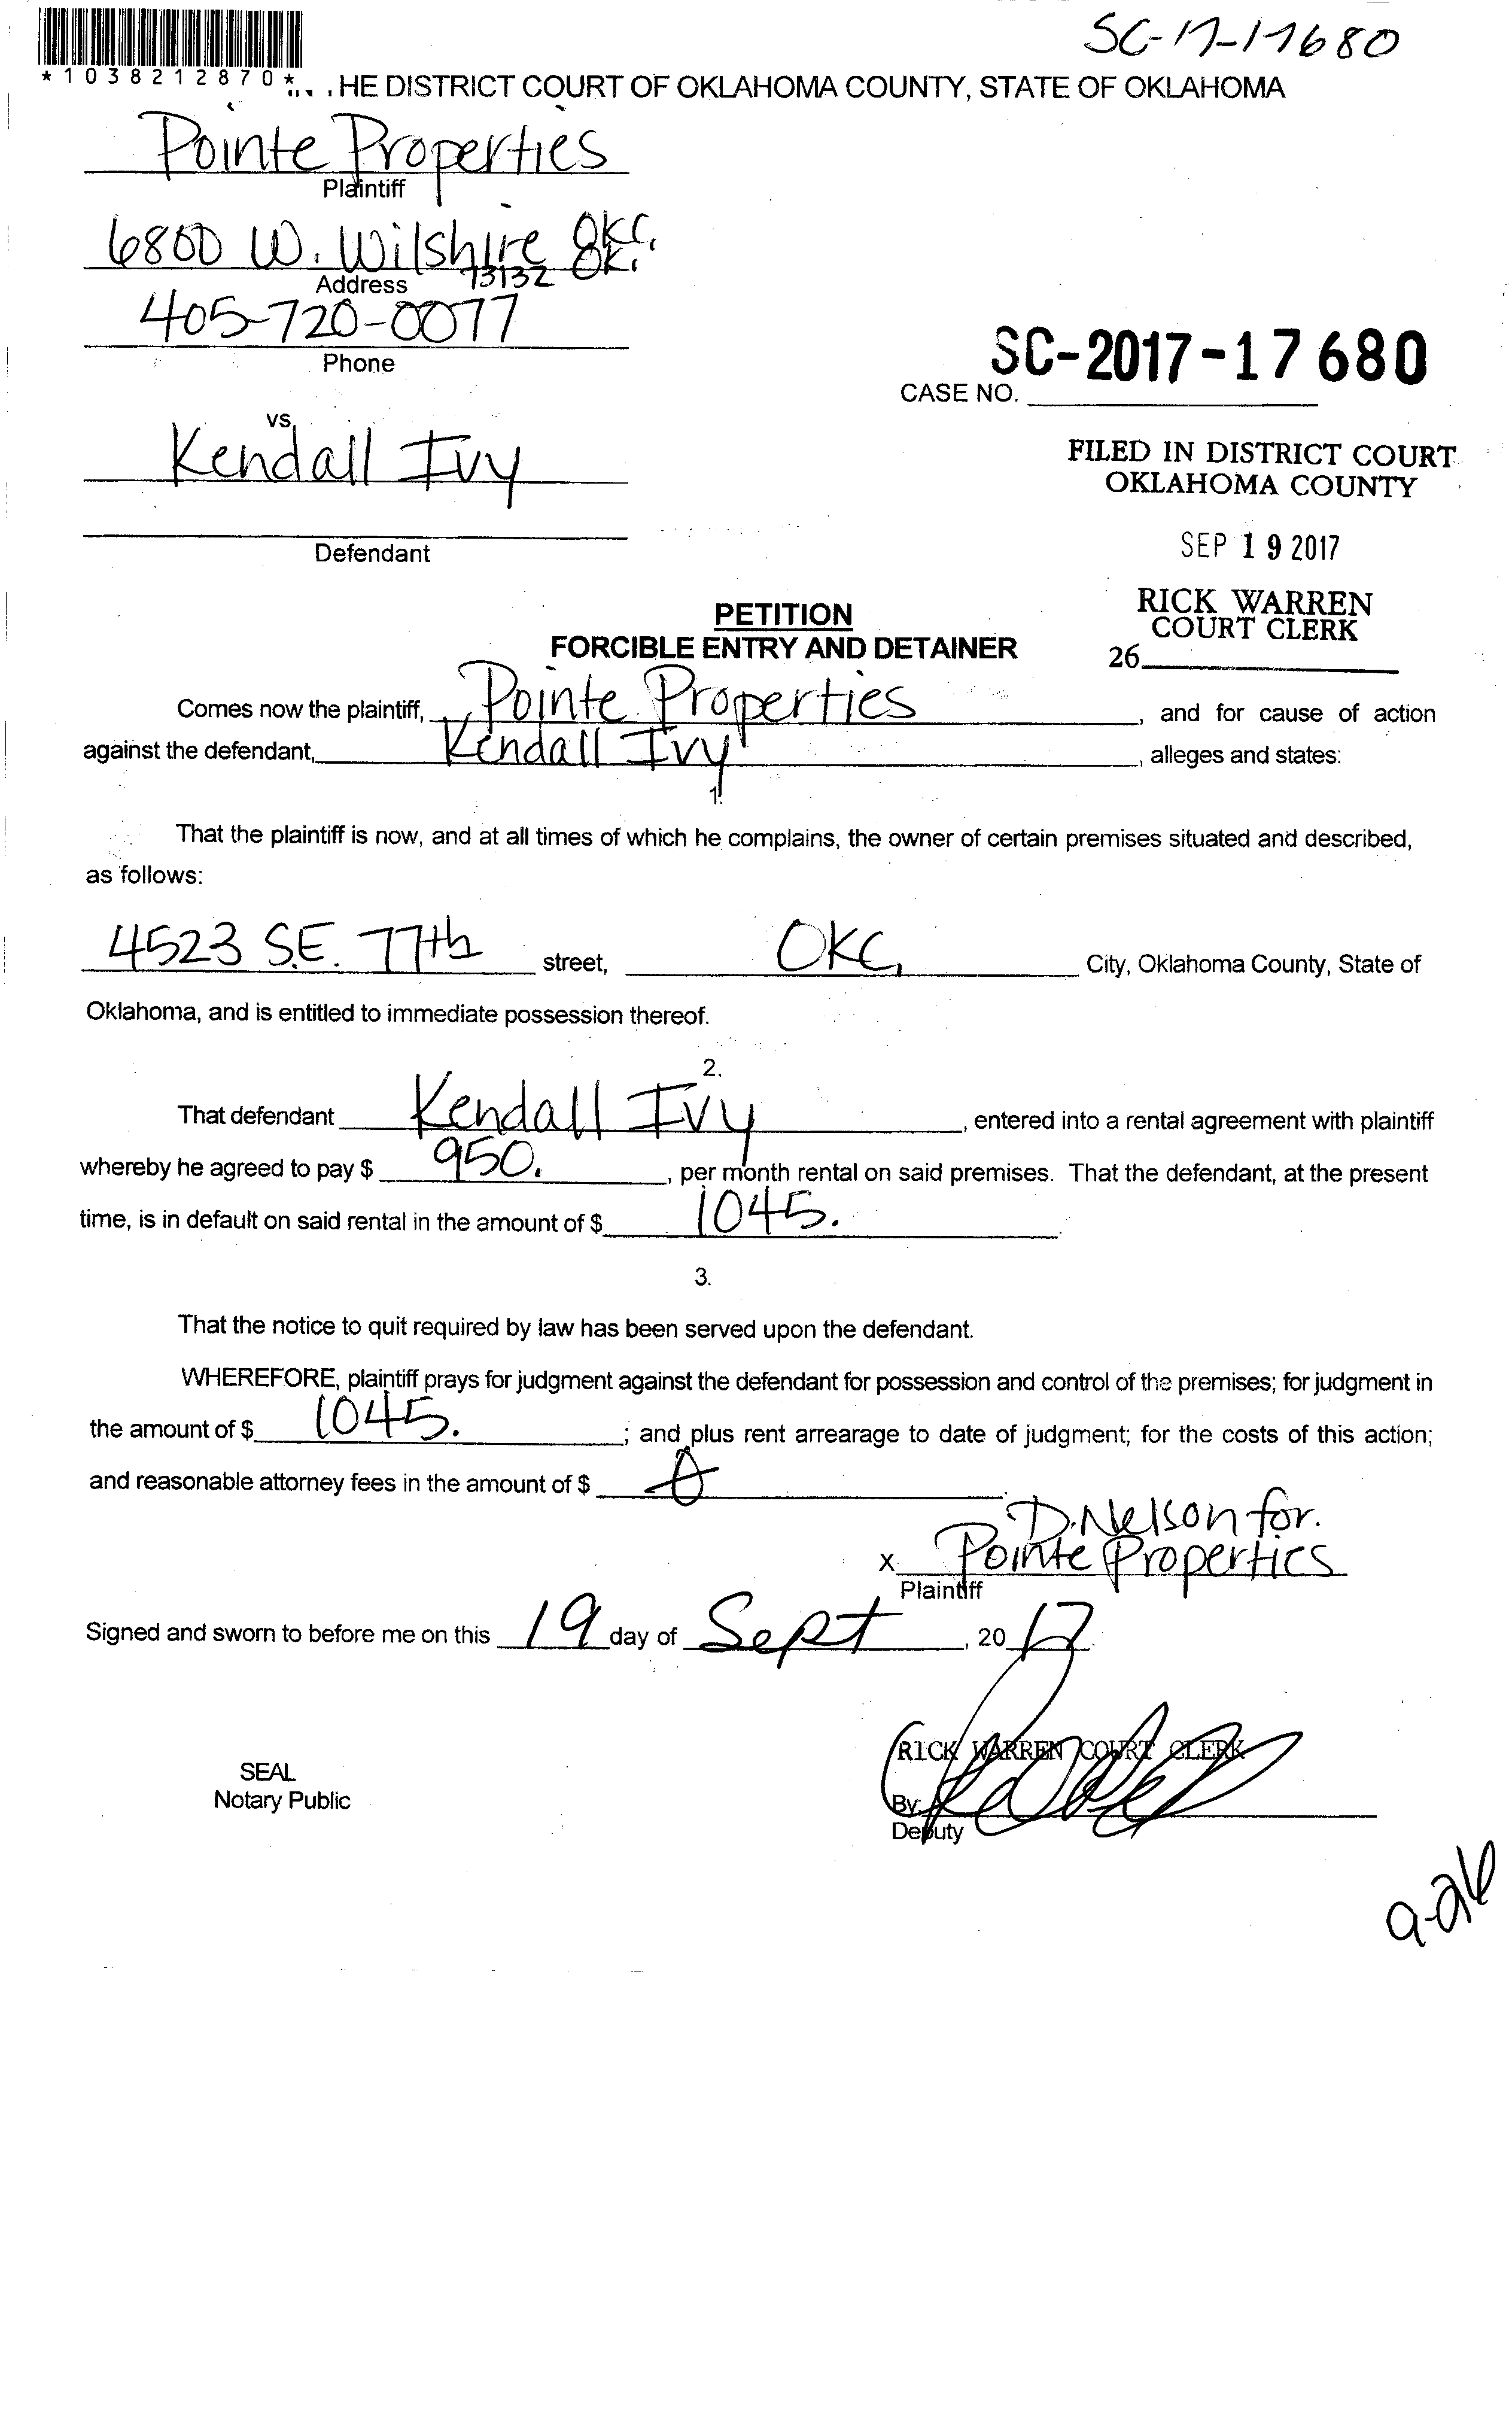 SC-17-17680
*1038212870*
HE DISTRICT COURT OF OKLAHOMA COUNTY, STATE OF OKLAHOMA
Pointe Properties
Plaintiff
6800 W. Wilshire OKC,
OK.
73132
Address
405-720-0077
Phone
SC-2017-17680
CASE NO.
vs.
Kendall Ivy
FILED IN DISTRICT COURT
OKLAHOMA COUNTY
Defendant
SEP 19 2017
RICK WARREN
COURT CLERK
26
PETITION
FORCIBLE ENTRY AND DETAINER
Comes now the plaintiff, Pointe Properties, and for cause of action
against the defendant, Kendall Ivy, alleges and states:
1.
That the plaintiff is now, and at all times of which he complains, the owner of certain premises situated and described,
as follows:
4523 S.E. 77th street, OKC, City, Oklahoma County, State of
Oklahoma, and is entitled to immediate possession thereof.
2.
That defendant Kendall Ivy, entered into a rental agreement with plaintiff
whereby he agreed to pay $ 950., per month rental on said premises. That the defendant, at the present
time, is in default on said rental in the amount of $ 1045.
3.
That the notice to quit required by law has been served upon the defendant.
WHEREFORE, plaintiff prays for judgment against the defendant for possession and control of the premises; for judgment in
the amount of $ 1045.; and plus rent arrearage to date of judgment; for the costs of this action;
and reasonable attorney fees in the amount of $ 0.
D. Nelson for.
x Pointe Properties
Plaintiff
Signed and sworn to before me on this 19 day of Sept, 2017.
RICK WARREN COURT CLERK
SEAL
Notary Public
By:
Deputy
9-26